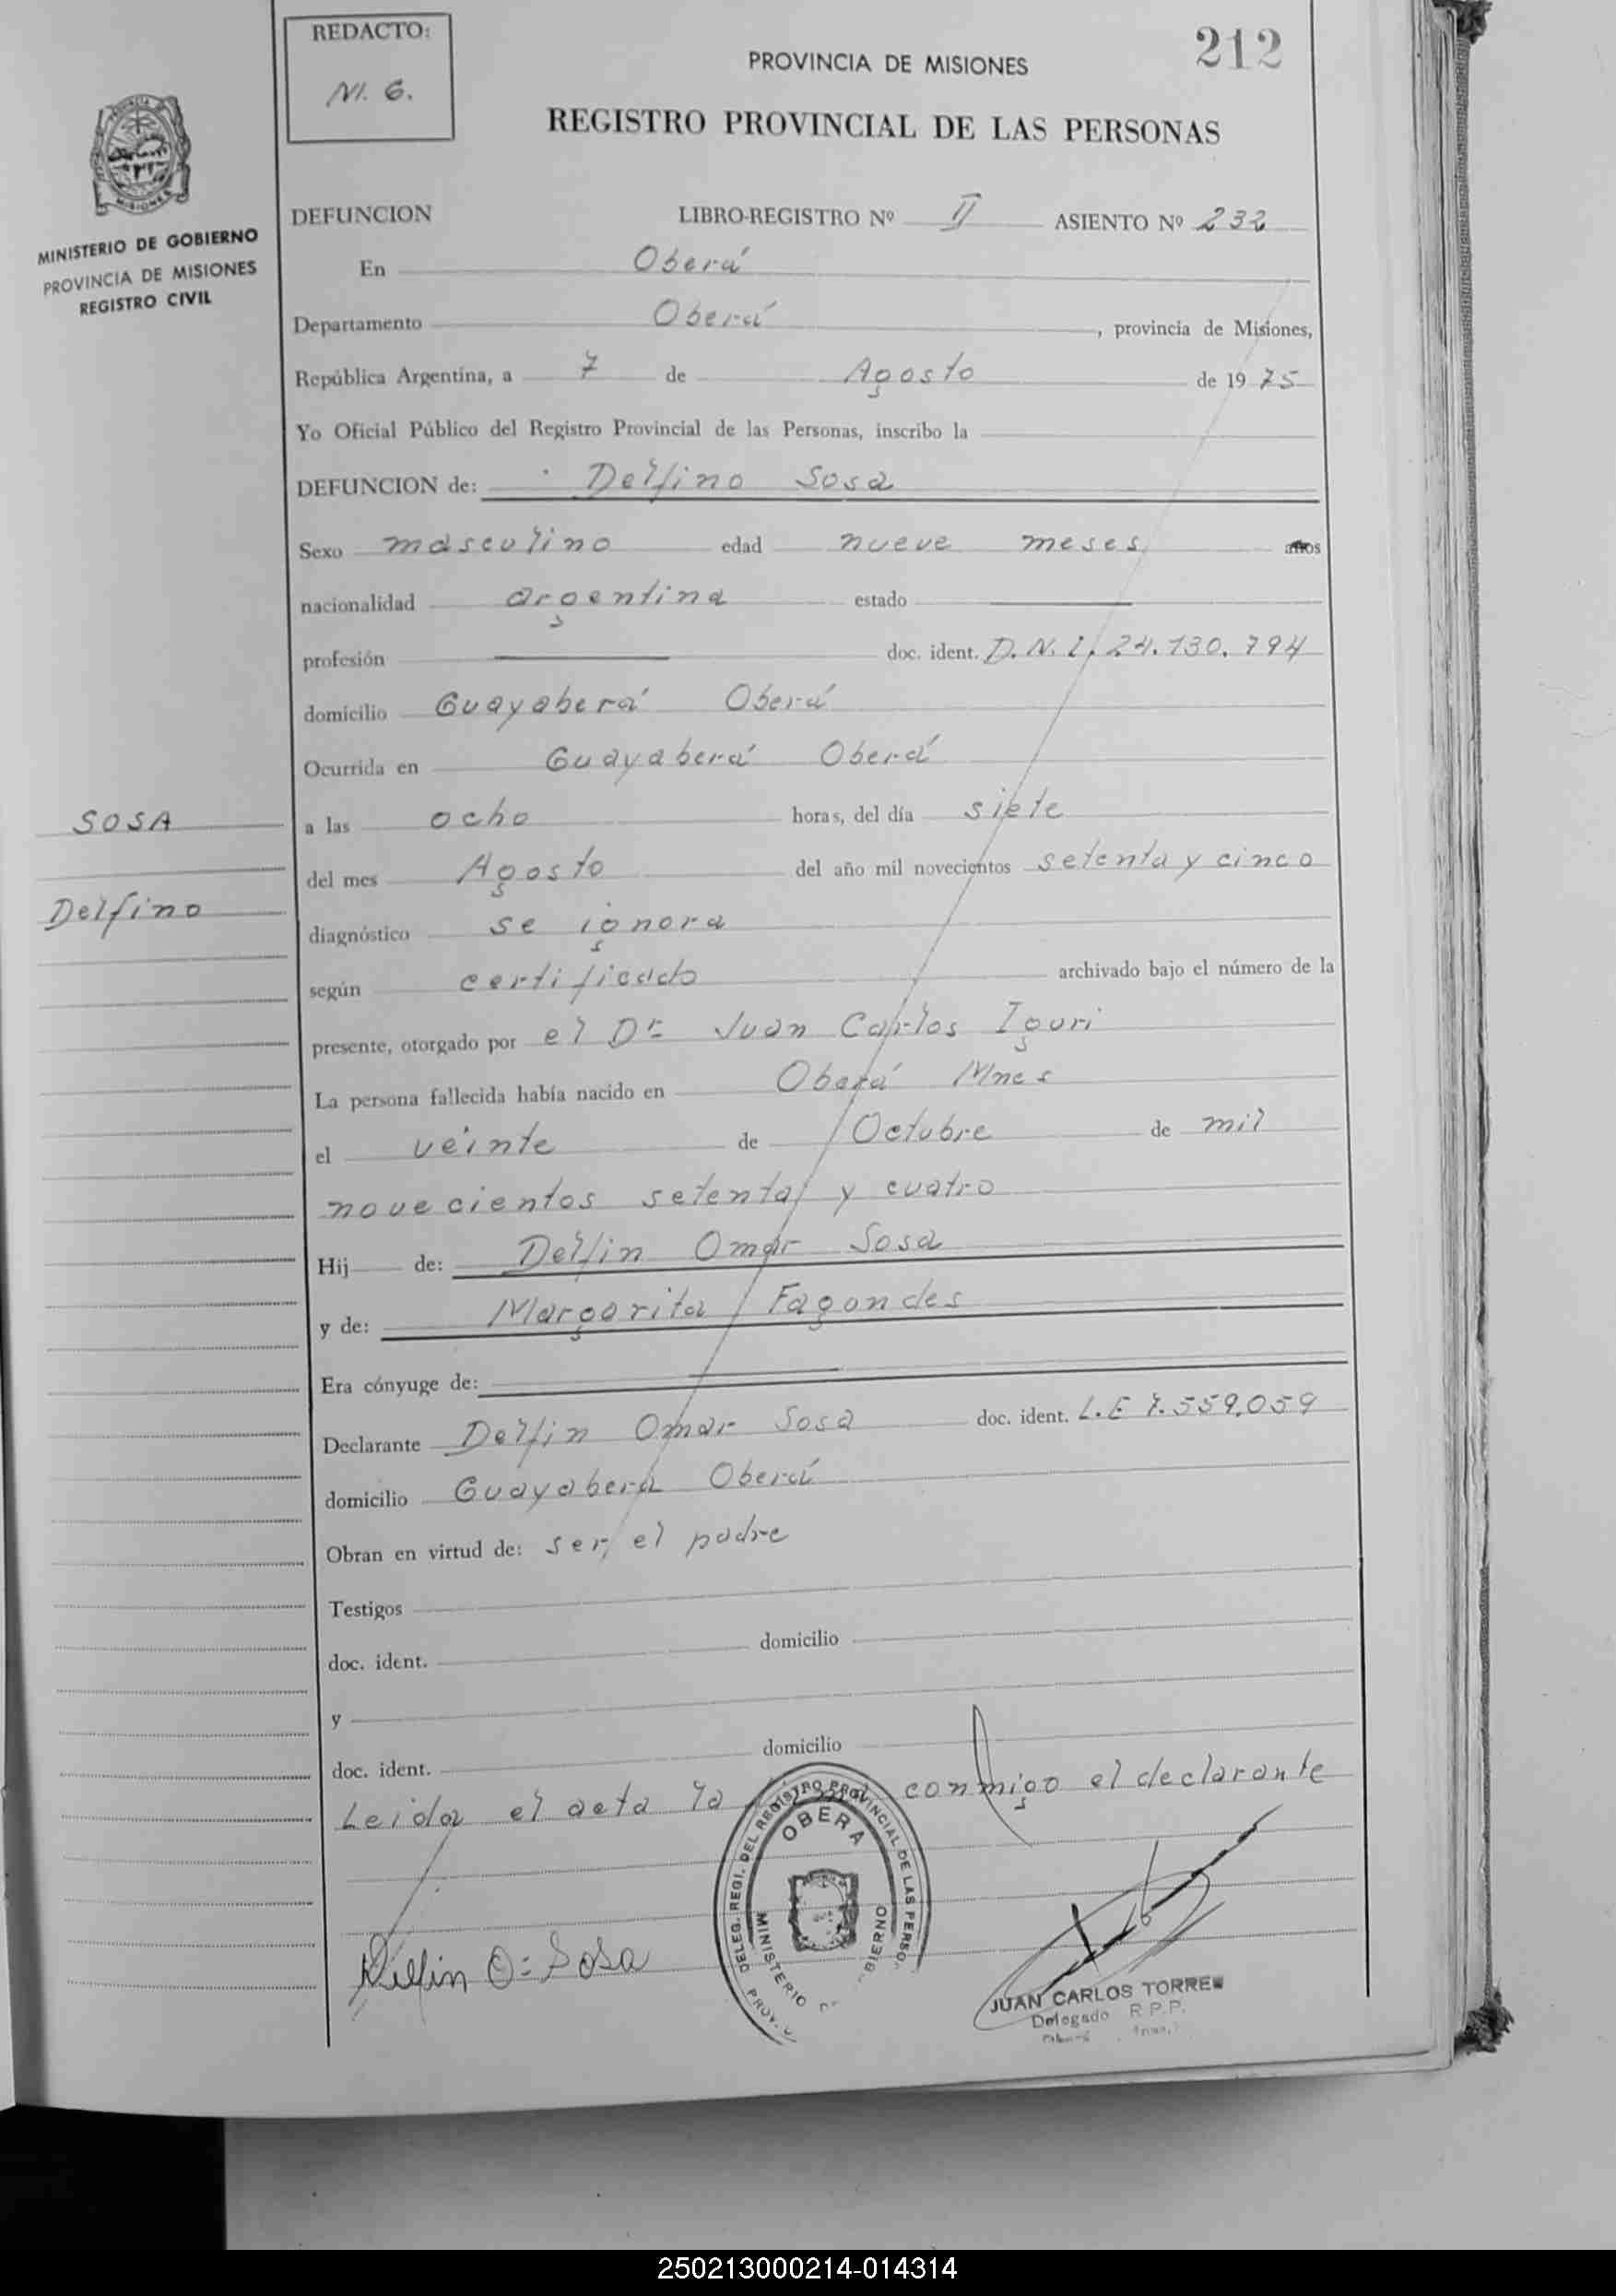 REDACTO:
M. G.
212
PROVINCIA DE MISIONES
REGISTRO PROVINCIAL DE LAS PERSONAS
MINISTERIO DE GOBIERNO
PROVINCIA DE MISIONES
REGISTRO CIVIL
DEFUNCION LIBRO-REGISTRO Nº II ASIENTO Nº 232
En Oberá
Departamento Oberá, provincia de Misiones,
República Argentina, a 7 de Agosto de 1975
Yo Oficial Público del Registro Provincial de las Personas, inscribo la
DEFUNCION de: Delfino Sosa
Sexo masculino edad nueve meses años
nacionalidad argentina estado
profesión doc. ident. D.N.I. 24.130.794
domicilio Guayaberá Oberá
Ocurrida en Guayaberá Oberá
SOSA
a las ocho horas, del día siete
del mes Agosto del año mil novecientos setenta y cinco
Delfino
diagnóstico se ignora
según certificado archivado bajo el número de la
presente, otorgado por el Dr Juan Carlos Iguri
La persona fallecida había nacido en Oberá Mnes
el veinte de Octubre de mil
novecientos setenta y cuatro
Hij de: Delfin Omar Sosa
y de: Margarita Fagondes
Era cónyuge de:
Declarante Delfin Omar Sosa doc. ident. L.E 7.559.059
domicilio Guayabera Oberá
Obran en virtud de: ser el padre
Testigos
doc. ident. domicilio
y
doc. ident. domicilio
Leida el acta la conmigo el declarante
DELEG. REGI. DEL REGISTRO PROVINCIAL DE LAS PERSO.
OBERA
MINISTERIO
Delfin O. Sosa
JUAN CARLOS TORRES
Delegado R.P.P.
250213000214-014314